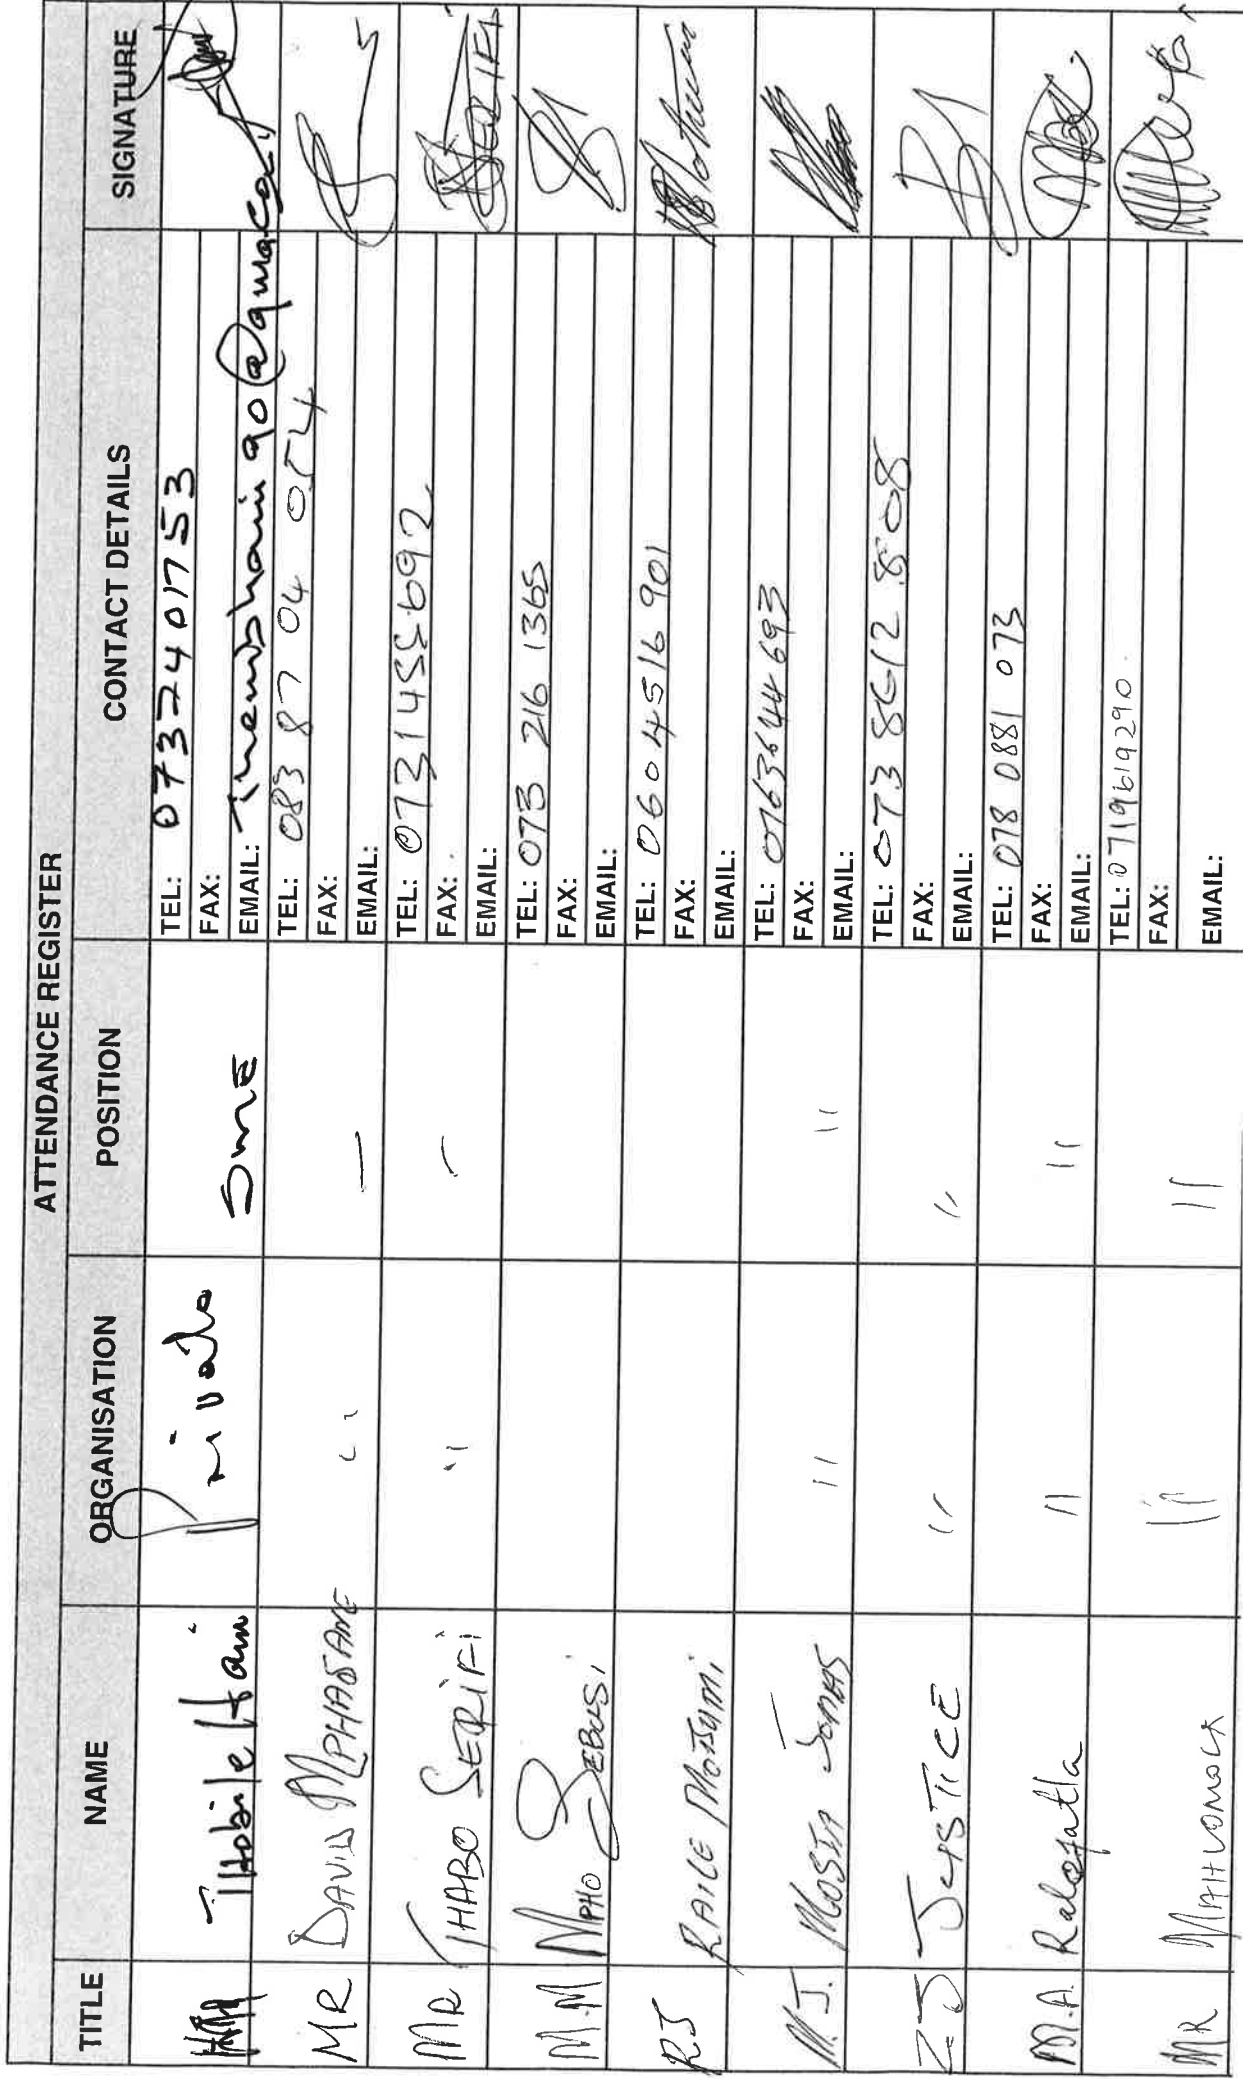 ATTENDANCE REGISTER
TITLE NAME ORGANISATION POSITION CONTACT DETAILS SIGNATURE
Thobile Hani Private SMME
TEL: 0737401753
FAX:
EMAIL: Thembihani90@gmail.com
MR DAVID MPHAGANE " —
TEL: 083 87 04 054
FAX:
EMAIL:
MR THABO SERIFI "
TEL: 0731455692
FAX:
EMAIL:
M.M MPHO SEBUSI
TEL: 073 216 1365
FAX:
EMAIL:
RJ RAILE MOTSUMI
TEL: 060 4516 901
FAX:
EMAIL:
M.J. MOSIA JONAS " "
TEL: 0763644693
FAX:
EMAIL:
Z.J JUSTICE " "
TEL: 073 8612 808
FAX:
EMAIL:
M.A. Ralegatla " "
TEL: 078 0881 073
FAX:
EMAIL:
MR " "
TEL: 0719619290
FAX:
EMAIL: